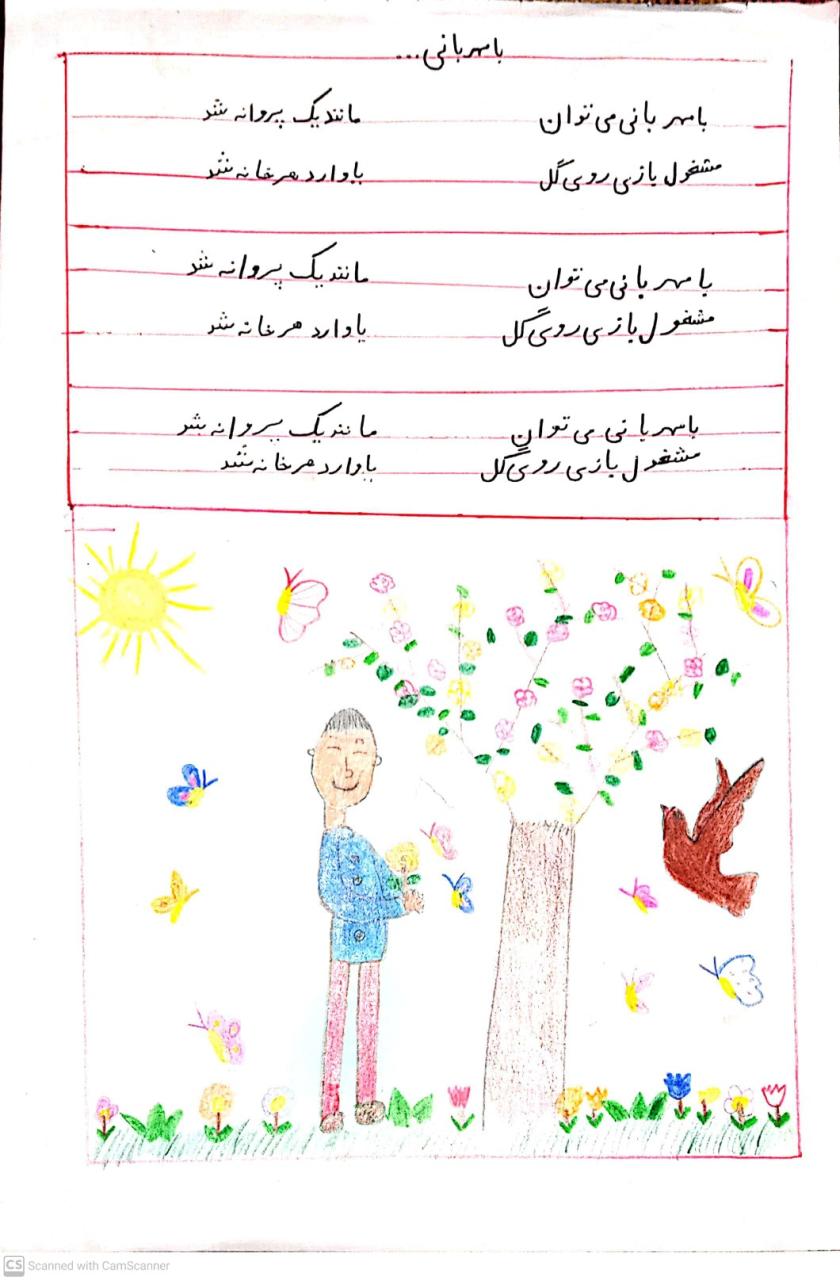 با مهربانی...
با مهربانی می توان مانند یک پروانه شد
مشغول بازی روی گل یا وارد هر خانه شد
با مهربانی می توان مانند یک پروانه شد
مشغول بازی روی گل یا وارد هر خانه شد
با مهربانی می توان مانند یک پروانه شد
مشغول بازی روی گل یا وارد هر خانه شد
CS Scanned with CamScanner